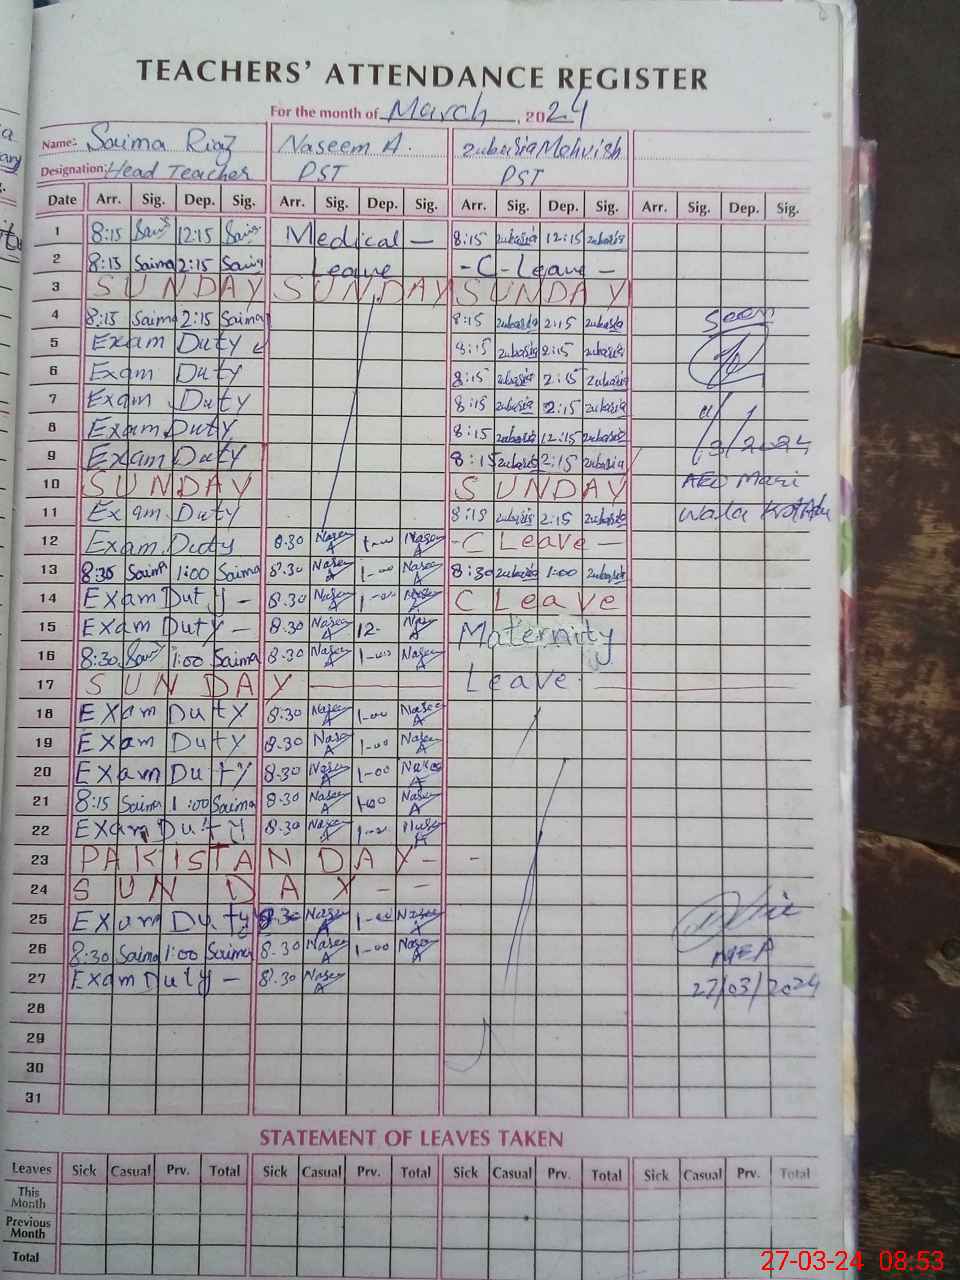 TEACHERS' ATTENDANCE REGISTER
For the month of March, 2024
Name: Saima Riaz Naseem A. zubasia Mehvish
Designation: Head Teacher PST PST
Date Arr. Sig. Dep. Sig. Arr. Sig. Dep. Sig. Arr. Sig. Dep. Sig. Arr. Sig. Dep. Sig.
1 8:15 Saim 12:15 Saim Medical — 8:15 zubasia 12:15 zubasia
2 8:15 Saima 2:15 Saima Leave - C - Leave -
3 SUNDAY SUNDAY SUNDAY
4 8:15 Saima 2:15 Saima 8:15 zubasia 2:15 zubasia Seen
5 Exam Duty 8:15 zubasia 2:15 zubasia
6 Exam Duty 8:15 zubasia 2:15 zubasia
7 Exam Duty 8:15 zubasia 2:15 zubasia
8 Exam Duty 8:15 zubasia 12:15 zubasia /3/2024
9 Exam Duty 8:15 zubasia 2:15 zubasia
10 SUNDAY SUNDAY AEO Mari
11 Exam Duty 8:15 zubasia 2:15 zubasia wala
12 Exam Duty 8.30 Naseem A 1-00 Naseem A - C Leave -
13 8:30 Saima 1:00 Saima 8.30 Naseem A 1-00 Naseem A 8:30 zubasia 1:00 zubasia
14 Exam Duty - 8.30 Naseem A 1-00 Naseem A C Leave
15 Exam Duty - 8.30 Naseem A 12- Naseem A Maternity
16 8:30 Saima 1:00 Saima 8.30 Naseem A 1-00 Naseem A
17 SUNDAY Leave.
18 Exam Duty 8.30 Naseem A 1-00 Naseem A
19 Exam Duty 8.30 Naseem A 1-00 Naseem A
20 Exam Duty 8.30 Naseem A 1-00 Naseem A
21 8:15 Saima 1:00 Saima 8.30 Naseem A 1-00 Naseem A
22 Exam Duty 8.30 Naseem A Naseem A
23 PAKISTAN DAY - -
24 SUNDAY - -
25 Exam Duty 8.30 Naseem A 1-00 Naseem A
26 8:30 Saima 1:00 Saima 8.30 Naseem A 1-00 Naseem A MEA
27 Exam Duty - 8.30 Naseem A 27/03/2024
28
29
30
31
STATEMENT OF LEAVES TAKEN
Leaves Sick Casual Prv. Total Sick Casual Prv. Total Sick Casual Prv. Total Sick Casual Prv. Total
This Month
Previous Month
Total
27-03-24 08:53